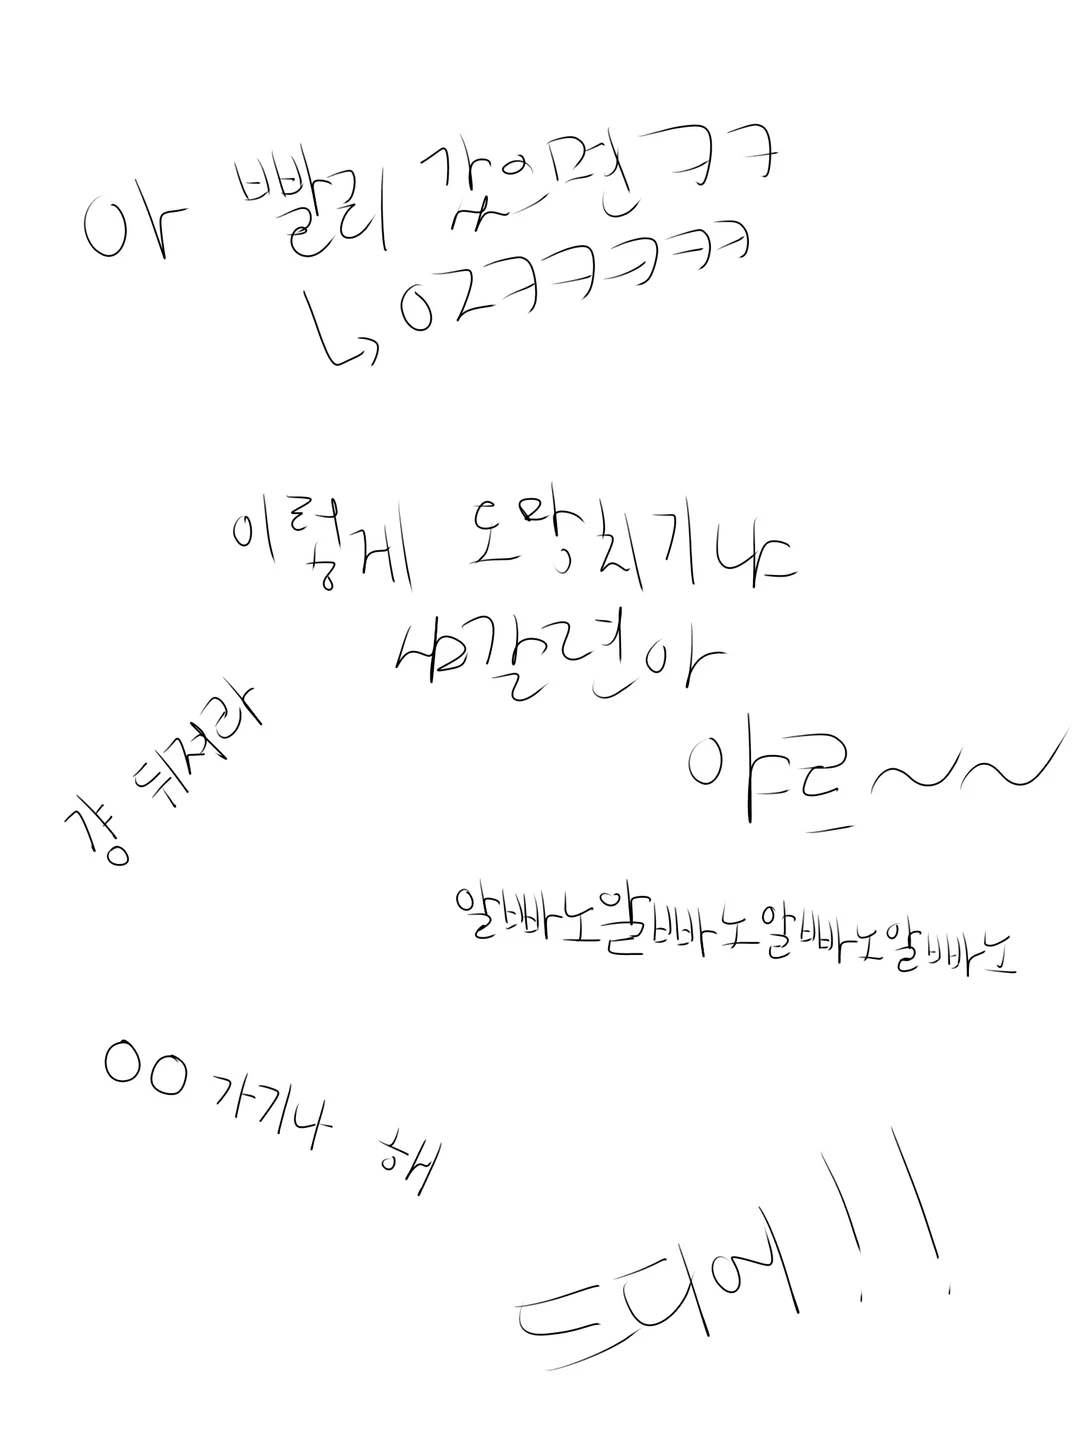 아 빨리 갔으면 ㅋㅋ
↳ 이ㅈㅋㅋㅋㅋㅋ
이렇게 도망치기냐
싸갈련아
걍 뒤져라
야르~~
알빠노알빠노알빠노알빠노
OO 가기나 해
드디어!!